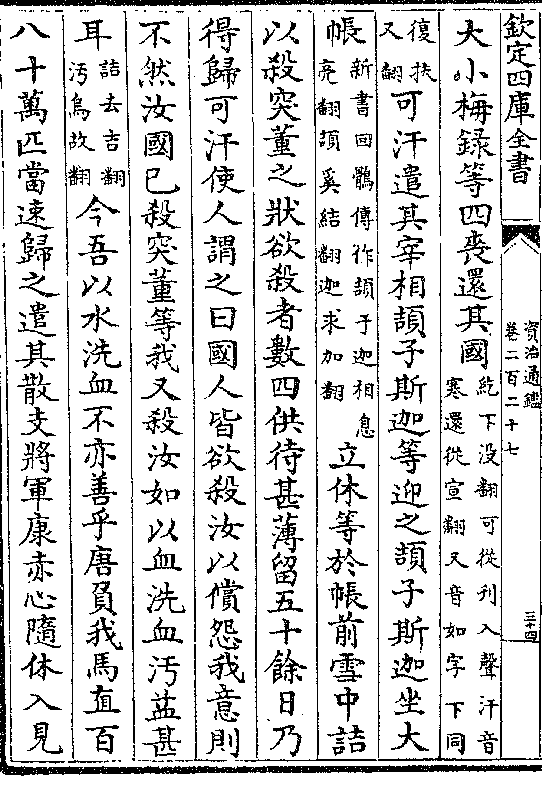 欽定四庫全書
資治通鑑
卷二百二十七
三十四
大小梅録等四喪還其國紇下没翻可從刋入聲汗音
寒還從宣翻又音如字下同
復扶
又翻可汗遣其宰相頡子斯迦等迎之頡子斯迦坐大
帳新書回鶻傳作頡于迦相息
亮翻頡奚結翻迦求加翻立休等於帳前雪中詰
以殺突董之狀欲殺者數四供待甚薄留五十餘日乃
得歸可汗使人謂之曰國人皆欲殺汝以償怨我意則
不然汝國已殺突董等我又殺汝如以血洗血汚益甚
耳詰去吉翻
汚烏故翻今吾以水洗血不亦善乎唐負我馬直百
八十萬匹當速歸之遣其散支將軍康赤心隨休入見